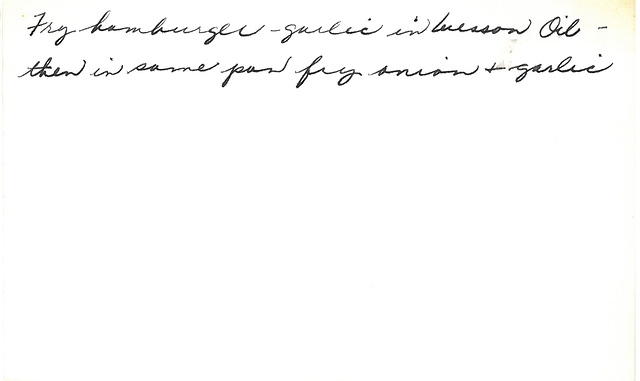 Fry hamburger - garlic in Wesson Oil -
then in same pan fry onion + garlic